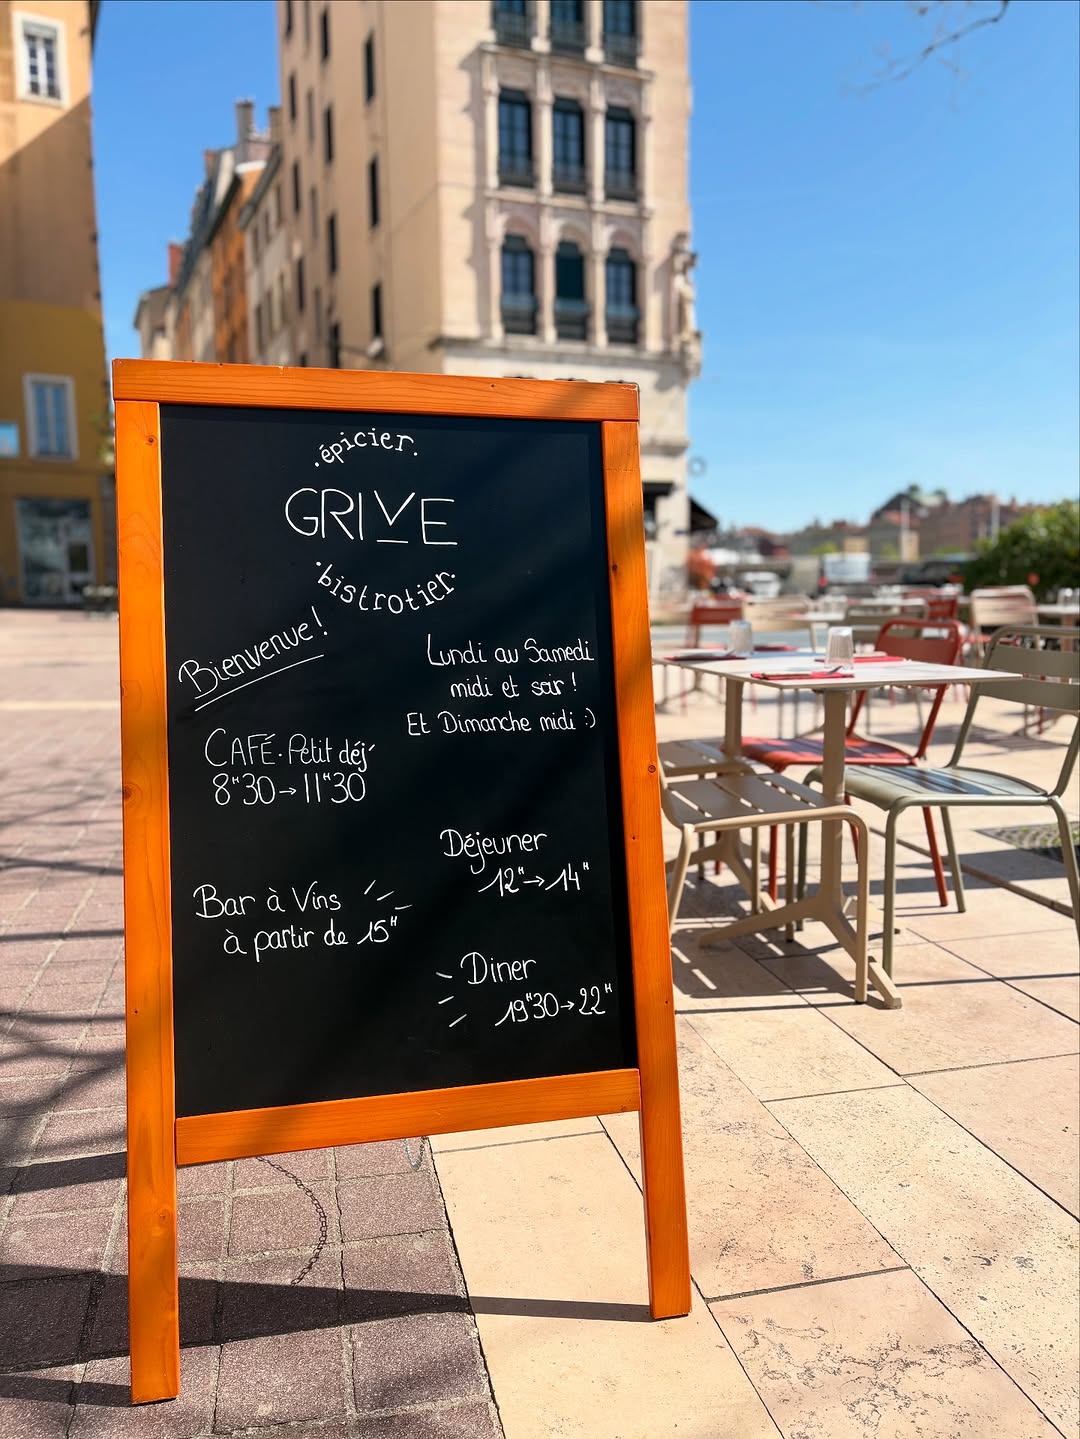 .épicier.
GRIVE
.bistrotier.
Bienvenue !
Lundi au Samedi
midi et soir !
Et Dimanche midi :)
CAFÉ. Petit déj'
8H30→11H30
Déjeuner
12H→14H
Bar à Vins
à partir de 15H
Diner
19H30→22H